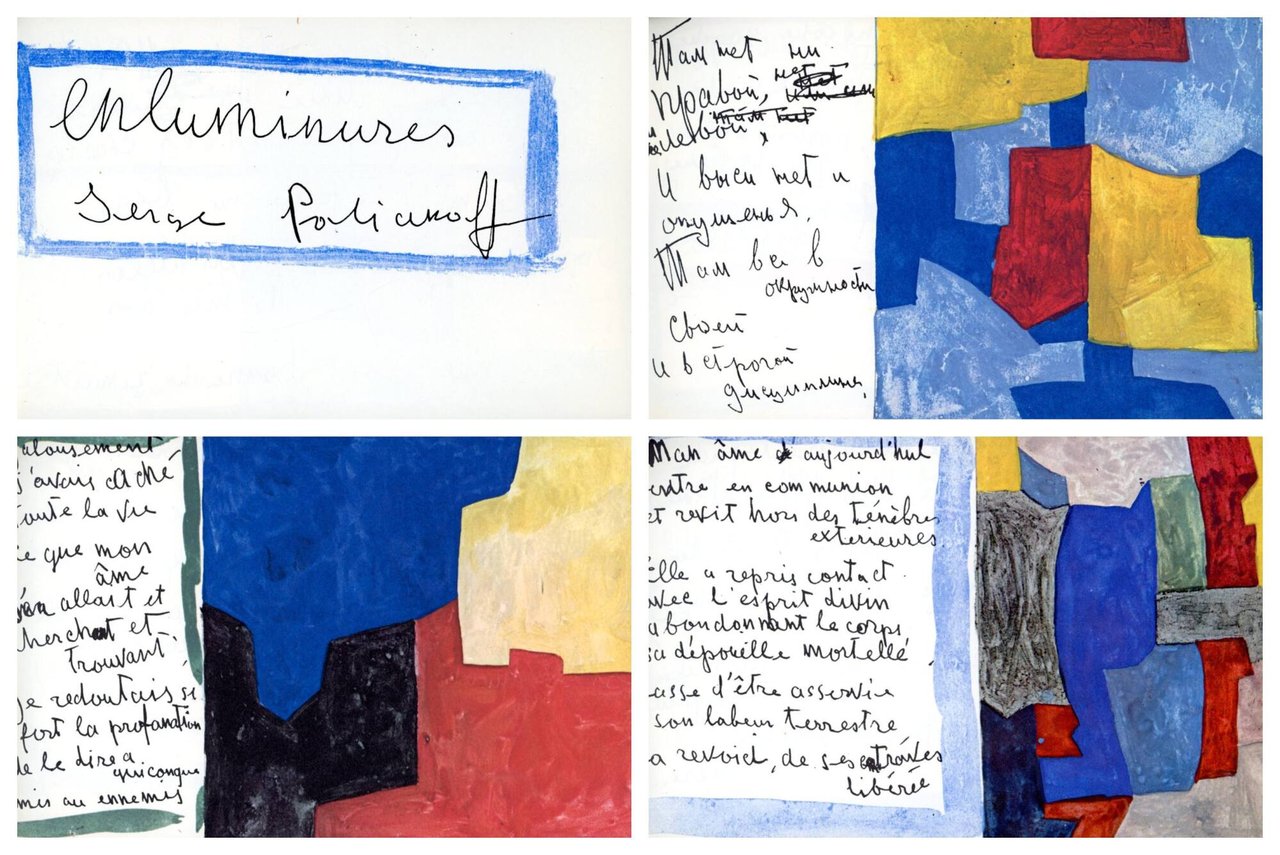 enluminures
Serge Poliakoff
Там нет ни
правой, нет
левой,
И выси нет и
опущенья,
Там все в
окружности
своей
и в строгой
дисциплине,
alousement
j'avais caché
toute la vie
ce que mon
âme
en allait et
cherchant et
trouvant,
je redoutais si
fort la profanation
de le dire a
quiconque
mis au ennemis
Mon âme aujourd'hui
entre en communion
et revit hors des ténèbres
exterieures
Elle a repris contact
avec l'esprit divin
abondonnant le corps,
sa dépouille mortelle,
asse d'être asservie
son labeur terrestre
a revoici, de ses
libérée